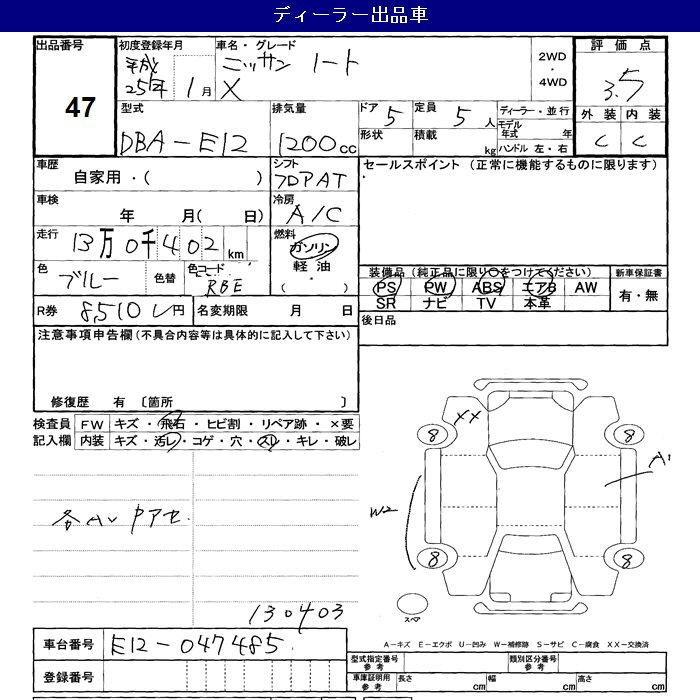 ディーラー出品車
出品番号
47
初度登録年月
平成
25年 1月
車名・グレード
ニッサン ノート
X
2WD
・
4WD
評価点
3.5
外装 内装
C C
型式
DBA-E12
排気量
1200cc
ドア 5
形状
定員 5人
積載 kg
ディーラー・並行
モデル年式 年
ハンドル 左・右
車歴
自家用・( )
シフト
フロアAT
セールスポイント (正常に機能するものに限ります)
車検
年 月( 日)
冷房
A/C
走行 13万0千402 km
燃料
ガソリン
軽油
・( )
色 ブルー
色替
色コード
RBE
装備品 (純正品に限り○をつけてください)
PS PW ABS エアB AW
SR ナビ TV 本革
新車保証書
有・無
R券 8,510 円
名変期限 月 日
後日品
注意事項申告欄 (不具合内容等は具体的に記入して下さい)
修復歴 有 〔箇所 〕
検査員記入欄
FW キズ・飛石・ヒビ割・リペア跡・×要
内装 キズ・汚レ・コゲ・穴・スレ・キレ・破レ
各AV
130403
XX
8 8
A1
W2
8 8
スペア
車台番号 E12-047485
登録番号
A-キズ E-エクボ U-凹み W-補修跡 S-サビ C-腐食 XX-交換済
型式指定番号 参考
類別区分番号 参考
車庫証明用 参考
長さ cm 幅 cm 高さ cm